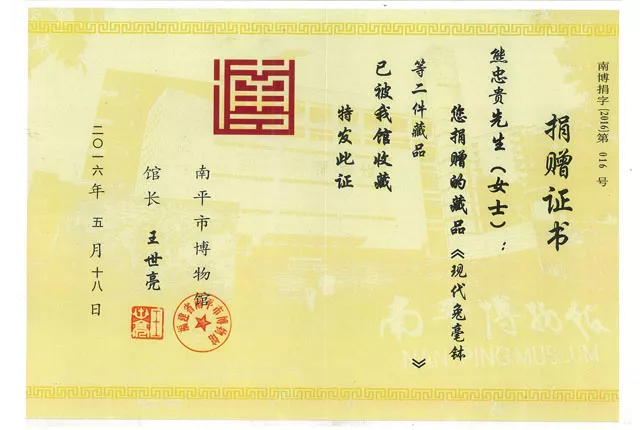 南博捐字[2016]第 016 号
捐赠证书
熊忠贵先生（女士）：
您捐赠的藏品《现代兔毫钵》
等二件藏品
已被我馆收藏
特发此证
南平市博物馆
馆长 王世亮
二〇一六年 五 月 十八 日
福建省南平市博物馆
南平博物馆
NANPING MUSEUM